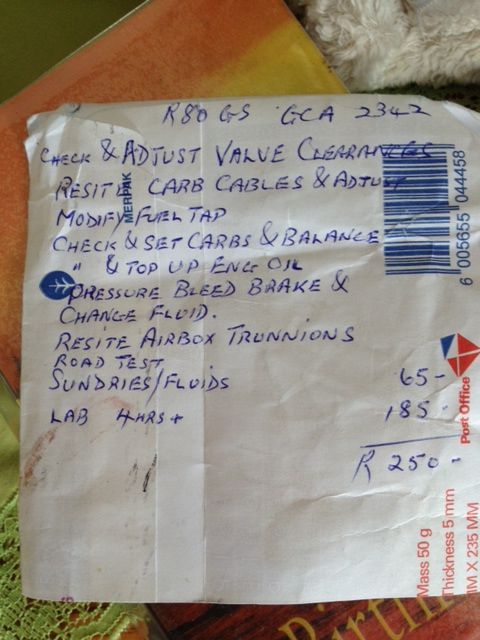 R80 GS GCA 2342
CHECK & ADJUST VALVE CLEARANCES
RESITE CARB CABLES & ADJUST
MODIFY FUEL TAP
CHECK & SET CARBS & BALANCE
" & TOP UP ENG OIL
PRESSURE BLEED BRAKE &
CHANGE FLUID.
RESITE AIRBOX TRUNNIONS
ROAD TEST
SUNDRIES/FLUIDS 65-
LAB 4HRS+ 185-
R 250-
MERPAK
6 005655 044458
Post Office
Mass 50 g
Thickness 5 mm
MM X 235 MM